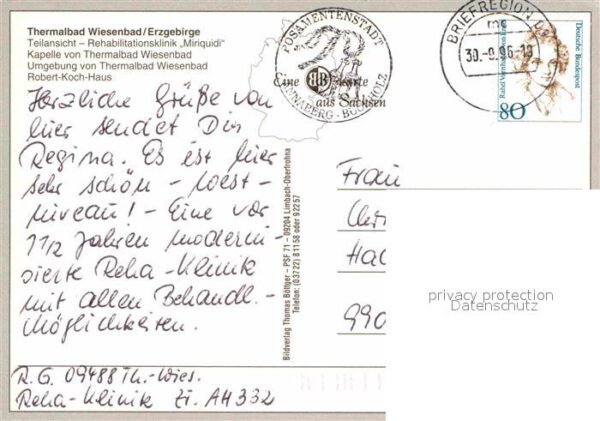 Thermalbad Wiesenbad/Erzgebirge
Teilansicht – Rehabilitationsklinik „Miriquidi"
Kapelle von Thermalbad Wiesenbad
Umgebung von Thermalbad Wiesenbad
Robert-Koch-Haus
POSAMENTENSTADT
Eine BB Karte
aus Sachsen
ANNABERG-BUCHHOLZ
BRIEFREGION
30.-9.96-18
Deutsche Bundespost
Rahel Varnhagen von Ense
80
Herzliche Grüße von
hier sendet Dir
Regina. Es ist hier
sehr schön – West-
niveau! – Eine vor
1 1/2 Jahren moderni-
sierte Reha-Klinik
mit allen Behandl.-
möglichkeiten.
R.G. 09488 Th.-Wies.
Reha-Klinik Zi. AH 332
Bildverlag Thomas Böttger – PSF 71 – 09204 Limbach-Oberfrohna
Telefon: (03722) 81158 oder 92257
Frau
Chri
Hac
990
privacy protection
Datenschutz